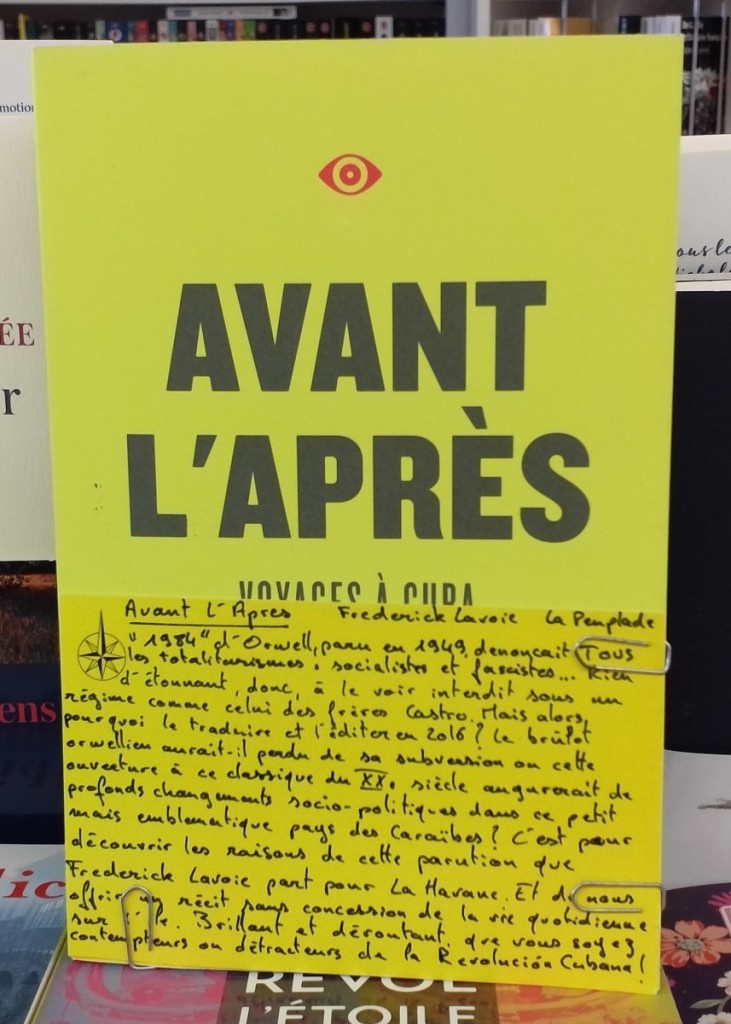 motion
ous le
ÉE
r
AVANT
L'APRÈS
VOYAGES À CUBA
Avant L'Apres Frederick Lavoie La Peuplade
"1984" d'Orwell, paru en 1949, denonçait Tous
les totalitarismes : socialistes et fascistes... Rien
d'étonnant, donc, à le voir interdit sous un
régime comme celui des frères Castro. Mais alors,
pourquoi le traduire et l'éditer en 2016 ? Le brûlot
orwellien aurait-il perdu de sa subversion ou cette
ouverture à ce classique du XXe siècle augurerait de
profonds changements socio-politiques dans ce petit
mais emblematique pays des Caraïbes ? C'est pour
découvrir les raisons de cette parution que
Frederick Lavoie part pour La Havane. Et de nous
offrir un récit sans concession de la vie quotidienne
sur l'île. Brillant et déroutant, que vous soyez
contempteurs ou détracteurs de la Revolución Cubana !
ens
lic
REVOL
L'ÉTOILE